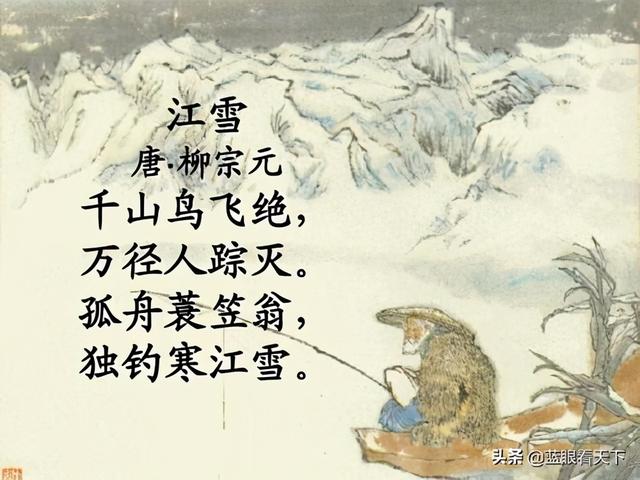 江雪
唐·柳宗元
千山鸟飞绝，
万径人踪灭。
孤舟蓑笠翁，
独钓寒江雪。
头条 @蓝眼看天下